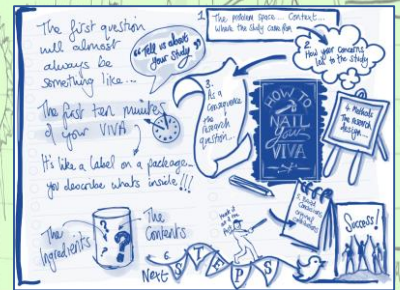 The first question
will almost
always be
something like...
"Tell us about
your Study"
The first ten minutes
of your VIVA
It's like a label on a package...
you describe whats inside!!!
The
Ingredients
The
Contents
1.
The problem space... Context...
Where the study came from
2.
How your concerns
led to the study
3.
As a
Consequence
the
research
question...
HOW TO
NAIL
your
VIVA
4 Methods
The research
design...
5
contributions
6
Next
STEPS
Success!